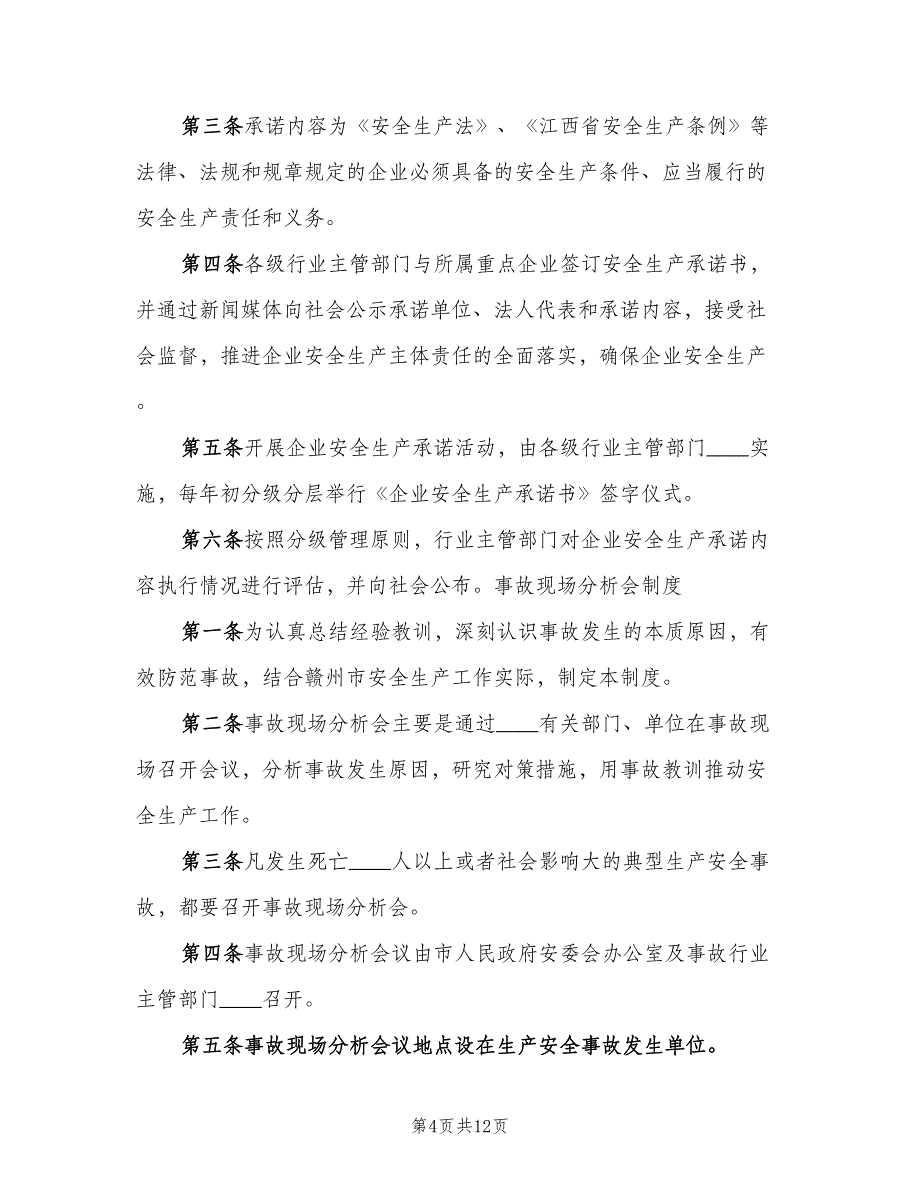 第三条承诺内容为《安全生产法》、《江西省安全生产条例》等
法律、法规和规章规定的企业必须具备的安全生产条件、应当履行的
安全生产责任和义务。
第四条各级行业主管部门与所属重点企业签订安全生产承诺书，
并通过新闻媒体向社会公示承诺单位、法人代表和承诺内容，接受社
会监督，推进企业安全生产主体责任的全面落实，确保企业安全生产
。
第五条开展企业安全生产承诺活动，由各级行业主管部门____实
施，每年初分级分层举行《企业安全生产承诺书》签字仪式。
第六条按照分级管理原则，行业主管部门对企业安全生产承诺内
容执行情况进行评估，并向社会公布。事故现场分析会制度
第一条为认真总结经验教训，深刻认识事故发生的本质原因，有
效防范事故，结合赣州市安全生产工作实际，制定本制度。
第二条事故现场分析会主要是通过____有关部门、单位在事故现
场召开会议，分析事故发生原因，研究对策措施，用事故教训推动安
全生产工作。
第三条凡发生死亡____人以上或者社会影响大的典型生产安全事
故，都要召开事故现场分析会。
第四条事故现场分析会议由市人民政府安委会办公室及事故行业
主管部门____召开。
第五条事故现场分析会议地点设在生产安全事故发生单位。
第4页共12页